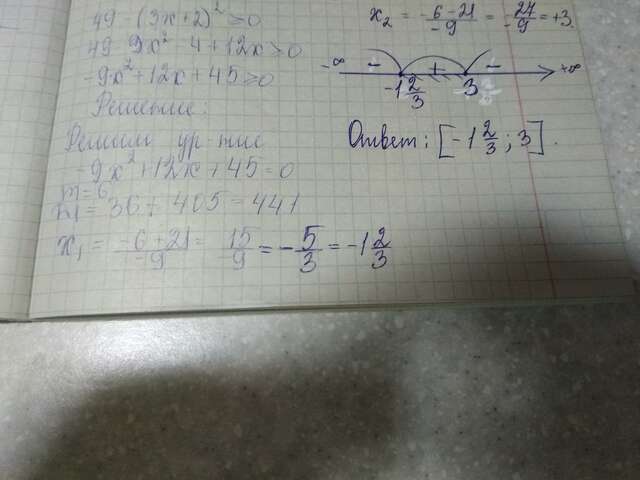 49 - (3x+2)² ≥ 0
49 9x² 4 + 12x ≥ 0
-9x² + 12x + 45 ≥ 0
Решение:
Решим ур-ние
-9x² + 12x + 45 = 0
m = 6
= 36 + 405 = 441
x₁ = -6+21/-9 = 15/9 = -5/3 = -1 2/3
x₂ = -6-21/-9 = -27/-9 = +3
-∞ - + - +∞
-1 2/3 3
Ответ: [-1 2/3 ; 3].